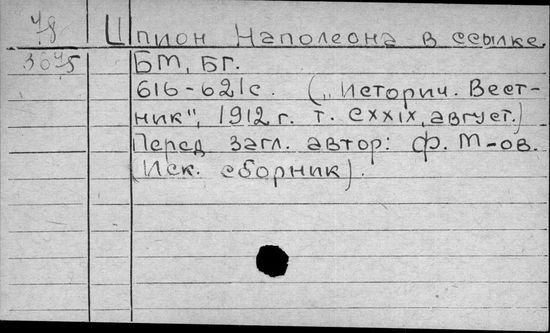 Ч8 Шпион Наполеона в ссылке
3695 БМ, БГ.
616-621с. („Историч. Вест-
ник", 1912 г. т. CXXIX, август.)
Перед загл. автор: Ф. М-ов.
(Иск. сборник).